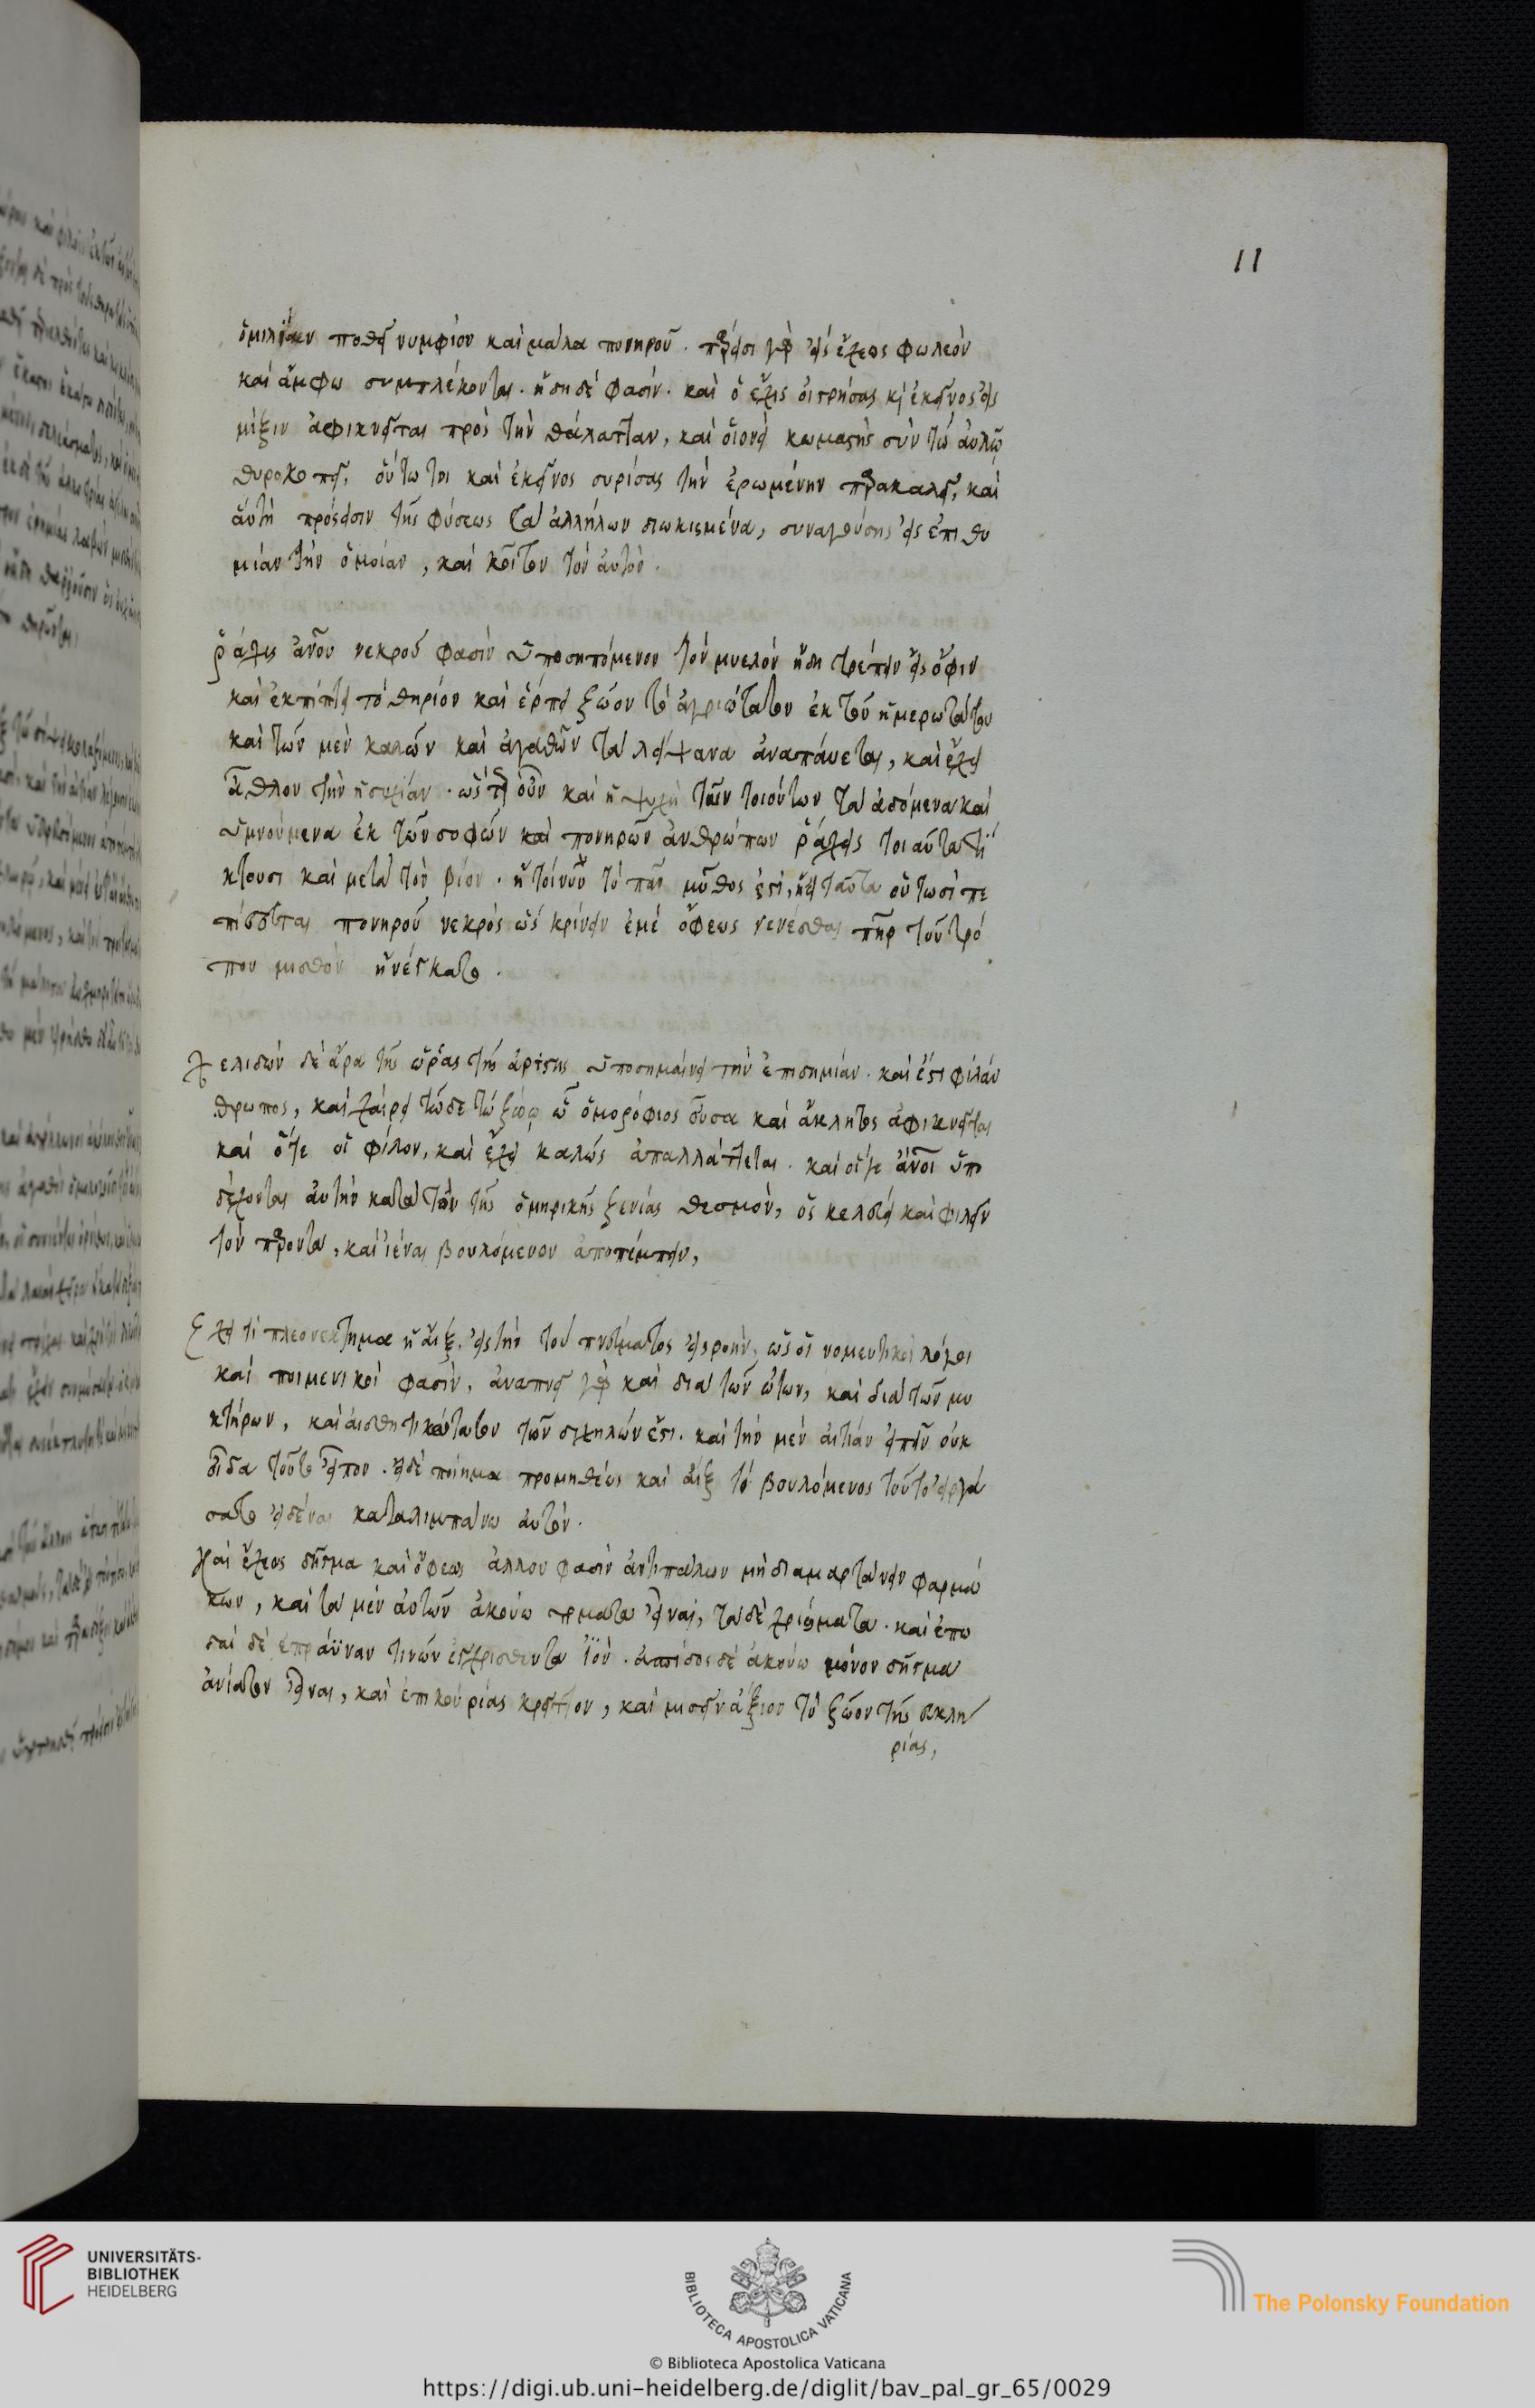 11
ὁμιλίαν ποθεῖ νυμφίου καὶ μάλα πονηροῦ. πρόεισι γὰρ εἰς ἔχεως φωλεὸν
καὶ ἄμφω συμπλέκονται. ἤδη δέ φασιν. καὶ ὁ ἔχις οἰστρήσας κἀκεῖνος εἰς
μίξιν ἀφικνεῖται πρὸς τὴν θάλατταν, καὶ οἱονεὶ κωμαστὴς σὺν τῷ αὐλῷ
θυροκοπεῖ, οὕτω τοι καὶ ἐκεῖνος συρίσας τὴν ἐρωμένην παρακαλεῖ, καὶ
αὐτὴ πρόσεισιν τῆς φύσεως τὰ ἀλλήλων διῳκισμένα, συναγούσης εἰς ἐπιθυ
μίαν τὴν ὁμοίαν, καὶ κοῖτον τὸν αὐτόν.
ῥάχις ἀνου νεκροῦ φασὶν ὑποσηπόμενον τὸν μυελὸν ἤδη τρέπειν εἰς ὄφιν
καὶ ἐκπίπτει τὸ θηρίον καὶ ἕρπει ζῶον τὸ ἀγριώτατον ἐκ τοῦ ἡμερωτάτου
καὶ τῶν μὲν καλῶν καὶ ἀγαθῶν τὰ λείψανα ἀναπαύεται, καὶ ἔχει
ἆθλον τὴν ἡσυχίαν. ὥσπερ οὖν καὶ ἡ ψυχὴ τῶν τοιούτων τὰ ᾀδόμενα καὶ
ὑμνούμενα ἐκ τῶν σοφῶν καὶ πονηρῶν ἀνθρώπων ῥάχεις τοιαῦτα τί
κτουσι καὶ μετὰ τὸν βίον. ἢ τοίνυν τὸ πᾶν μῦθός ἐστι, ἢ εἰ ταῦτα οὑτωσὶ πε
πίστευται πονηροῦ νεκρὸς ὡς κρίνειν ἐμὲ ὄφεως γενέσθαι πηρ τοῦ τρό
που μισθὸν ἠνέγκατο.
χελιδὼν δὲ ἄρα τῆς ὥρας τῆς ἀρίστης ὑποσημαίνει τὴν ἐπιδημίαν. καὶ ἔστι φιλάν
θρωπος, καὶ χαίρει τῷδε τῷ ζῴῳ ὡς ὁμορόφιος οὖσα καὶ ἄκλητος ἀφικνεῖται
καὶ ὅτε οἱ φίλον, καὶ ἔχει καλῶς ἀπαλλάττεται. καὶ οἵγε ἀνοι ὑπο
δέχονται αὐτὴν κατὰ τὸν τῆς ὁμηρικῆς ξενίας θεσμόν, ὃς κελεύει καὶ φιλεῖν
τὸν παρόντα, καὶ ἰέναι βουλόμενον ἀποπέμπειν,
ἔχει τι πλεονέκτημα ἡ αἲξ, εἰς τὴν τοῦ πνεύματος εἰσροήν, ὡς οἱ νομευτικοὶ λόγοι
καὶ ποιμενικοὶ φασὶν, ἀναπνεῖ γὰρ καὶ διὰ τῶν ὤτων, καὶ διὰ τῶν μυ
κτήρων, καὶ αἰσθητικώτατον τῶν διχηλῶν ἐστι. καὶ τὴν μὲν αἰτίαν εἰπεῖν οὐκ
οἶδα τοῦτο εἶπον. εἰ δὲ ποίημα προμηθέως καὶ αἲξ τὸ βουλόμενος τοῦτο εἰργά
σατο εἰδέναι καταλιμπάνω αὐτόν.
καὶ ἔχεως δῆγμα καὶ ὄφεως ἄλλου φασὶν ἀντιπάλων μὴ διαμαρτάνειν φαρμά
κων, καὶ τὰ μὲν αὐτῶν ἀκούω πώματα εἶναι, τὰ δὲ χρίσματα. καὶ ἐπῳ
δαὶ δὲ ἐπράϋναν τινῶν ἐγχρισθέντα ἰόν. ἀσπίδος δὲ ἀκούω μόνον δῆγμα
ἀνίατον εἶναι, καὶ ἐπικουρίας κρεῖττον, καὶ μισεῖν ἄξιον τὸ ζῶον τῆς σκλη
ρίας,
UNIVERSITÄTS-
BIBLIOTHEK
HEIDELBERG
BIBLIOTECA APOSTOLICA VATICANA
The Polonsky Foundation
© Biblioteca Apostolica Vaticana
https://digi.ub.uni-heidelberg.de/diglit/bav_pal_gr_65/0029